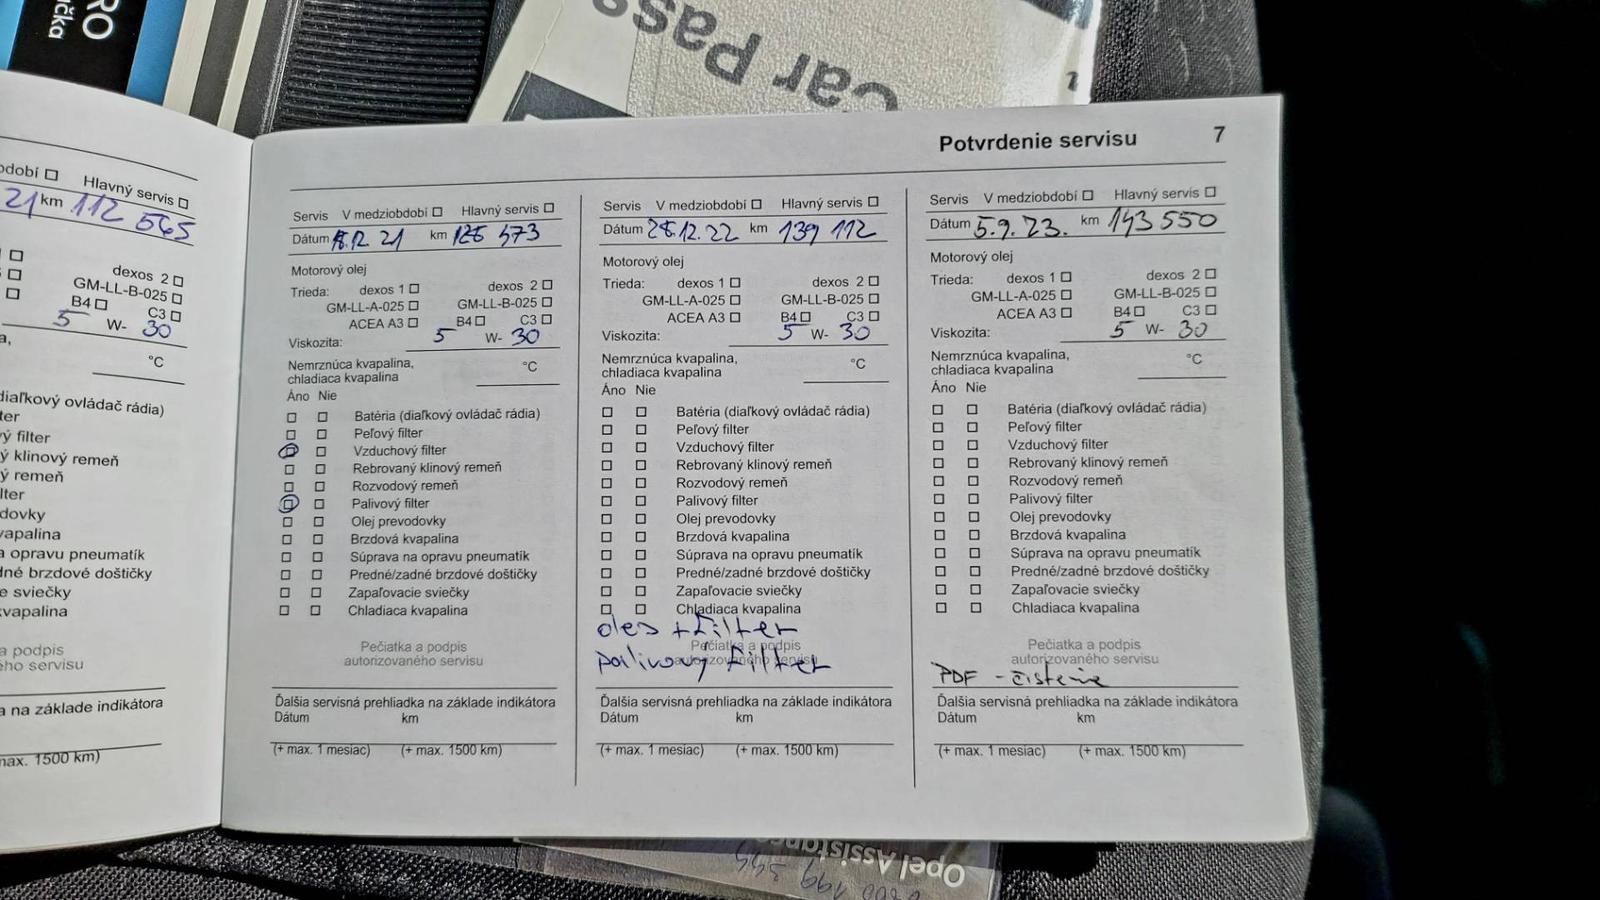 RO
ička
Car Pass
bdobí Hlavný servis
21 km 112 565
dexos 2
GM-LL-B-025
B4 C3
5 W- 30
a,
°C
diaľkový ovládač rádia)
ter
vý filter
ý klinový remeň
ý remeň
lter
dovky
vapalina
a opravu pneumatík
dné brzdové doštičky
e sviečky
kvapalina
a podpis
ého servisu
a na základe indikátora
max. 1500 km)
Potvrdenie servisu 7
Servis V medziobdobí Hlavný servis
Dátum 12. 21 km 573
Motorový olej
Trieda: dexos 1 dexos 2
GM-LL-A-025 GM-LL-B-025
ACEA A3 B4 C3
Viskozita: 5 W- 30
Nemrznúca kvapalina,
chladiaca kvapalina °C
Áno Nie
Batéria (diaľkový ovládač rádia)
Peľový filter
Vzduchový filter
Rebrovaný klinový remeň
Rozvodový remeň
Palivový filter
Olej prevodovky
Brzdová kvapalina
Súprava na opravu pneumatík
Predné/zadné brzdové doštičky
Zapaľovacie sviečky
Chladiaca kvapalina
Pečiatka a podpis
autorizovaného servisu
Ďalšia servisná prehliadka na základe indikátora
Dátum km
(+ max. 1 mesiac) (+ max. 1500 km)
Servis V medziobdobí Hlavný servis
Dátum 12. 22 km 139 112
Motorový olej
Trieda: dexos 1 dexos 2
GM-LL-A-025 GM-LL-B-025
ACEA A3 B4 C3
Viskozita: 5 W- 30
Nemrznúca kvapalina,
chladiaca kvapalina °C
Áno Nie
Batéria (diaľkový ovládač rádia)
Peľový filter
Vzduchový filter
Rebrovaný klinový remeň
Rozvodový remeň
Palivový filter
Olej prevodovky
Brzdová kvapalina
Súprava na opravu pneumatík
Predné/zadné brzdové doštičky
Zapaľovacie sviečky
Chladiaca kvapalina
olej + filter
Pečiatka a podpis
palivový filter
autorizovaného servisu
Ďalšia servisná prehliadka na základe indikátora
Dátum km
(+ max. 1 mesiac) (+ max. 1500 km)
Servis V medziobdobí Hlavný servis
Dátum 5.9.23. km 143 550
Motorový olej
Trieda: dexos 1 dexos 2
GM-LL-A-025 GM-LL-B-025
ACEA A3 B4 C3
Viskozita: 5 W- 30
Nemrznúca kvapalina,
chladiaca kvapalina °C
Áno Nie
Batéria (diaľkový ovládač rádia)
Peľový filter
Vzduchový filter
Rebrovaný klinový remeň
Rozvodový remeň
Palivový filter
Olej prevodovky
Brzdová kvapalina
Súprava na opravu pneumatík
Predné/zadné brzdové doštičky
Zapaľovacie sviečky
Chladiaca kvapalina
Pečiatka a podpis
autorizovaného servisu
PDF - čistenie
Ďalšia servisná prehliadka na základe indikátora
Dátum km
(+ max. 1 mesiac) (+ max. 1500 km)
Opel Assistance